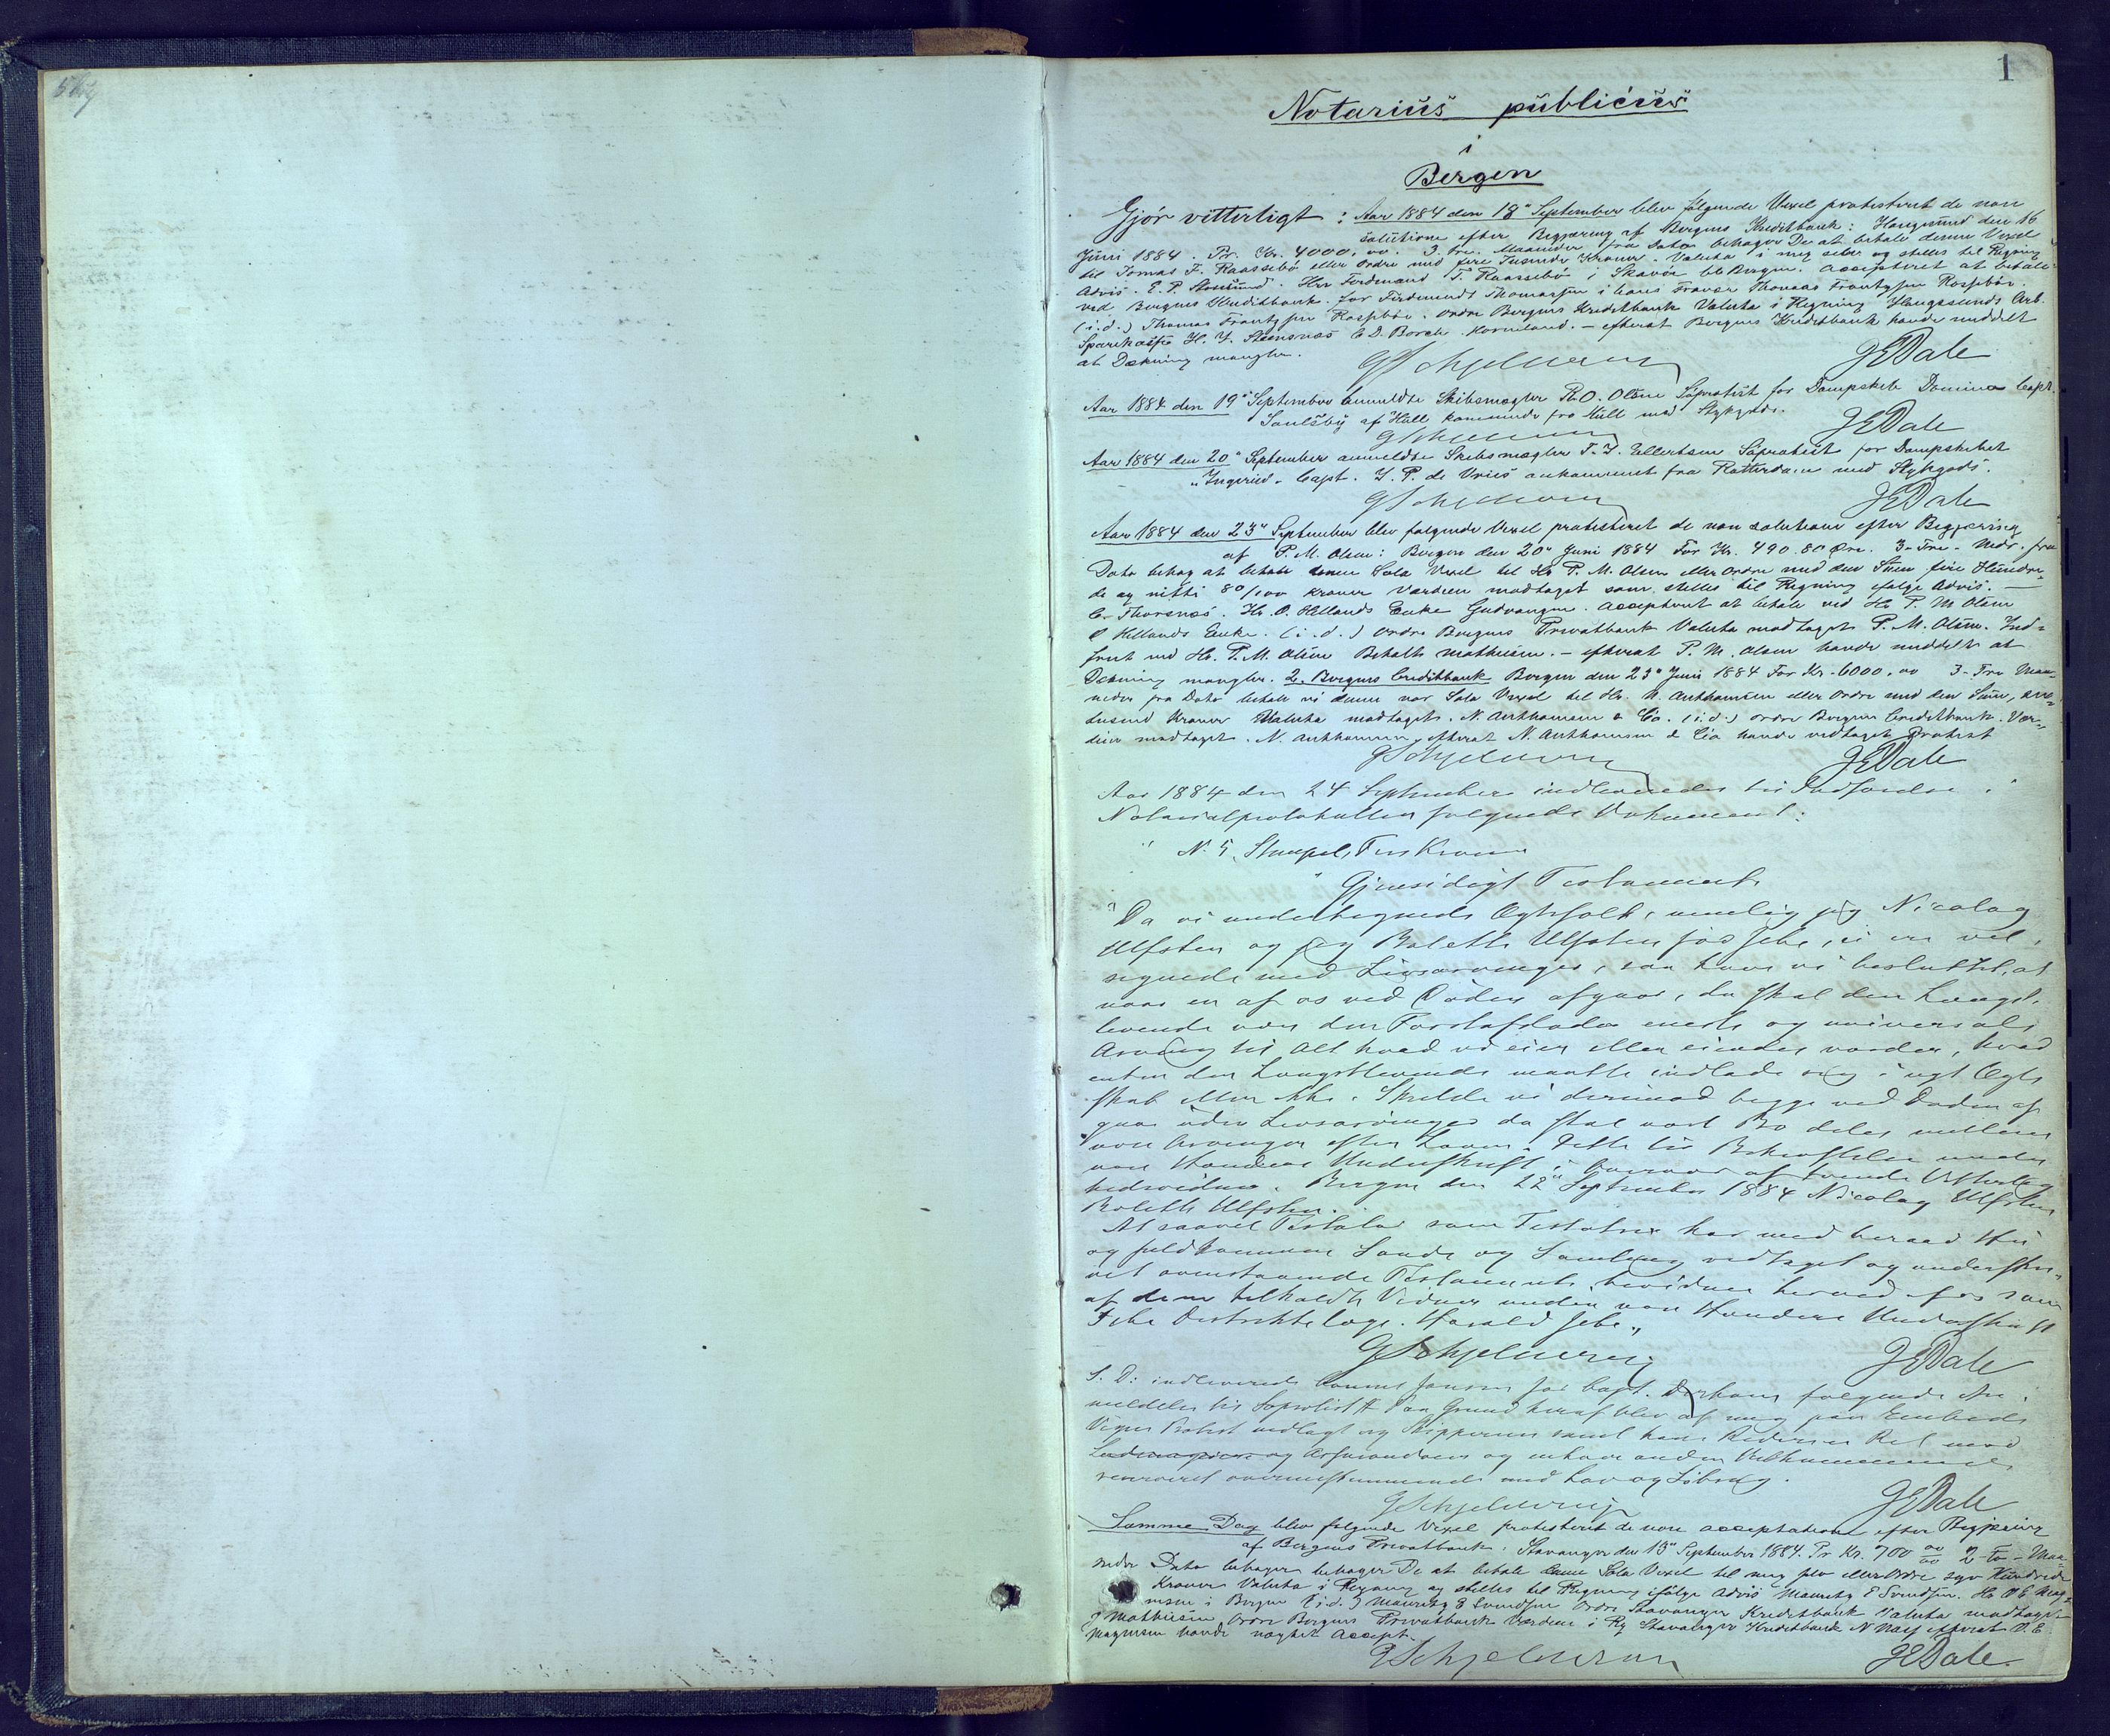 1
Notarius publicus
i
Bergen
Gjör vitterligt: Aar 1884 den 18de September blev følgende Vexel protesteret de non
solutione efter Begjæring af Bergens Kreditbank: Haugesund den 16
Juni 1884. Pr. Kr. 4000,00. 3. tre Maaneder fra dato behager De at betale denne Vexel
til Tomas F. Raassebö eller Ordre med fire Tusinde Kroner. Valuta i mig selv og stilles til Regning
Advis. E. P. . Herr Ferdinand T. Raassebö i Skavöe Bergen. Accepteret at betale
ved Bergens Kreditbank. for Ferdinand Thomassen i hans Fravær Thomas Frantzsen Rossebö.
(i.d.) Thomas Frantzsen Rossebö. Ordre Bergens Kreditbank Valuta i Regning Haugesunds Arb.
Sparekasse H. Y. Steensnæs C D. Borch. Korneland. – efterat Bergens Kreditbank havde meddelt
at Dækning mangler.
GSchjelderup JEDale
Aar 1884 den 19de September anmeldte Skibsmægler P.O. Olsen Söprotest for Dampskib Domino Capt.
Soulsby af Hull kommende fra Hull med Stykgods.
GSchjelderup JEDale
Aar 1884 den 20de September anmeldte Skibsmægler T. J. Ellertsen Söprotest for Dampskibet
"Ingerid" Capt. J. P. de Vries ankommet fra Rotterdam med Stykgods.
GSchjelderup JEDale
Aar 1884 den 23de September blev følgende Vexel protesteret de non solutione efter Begjæring
af P. M. Olsen: Bergen den 20de Juni 1884 For Kr. 490.80 Øre. 3-Tre-Mdr. fra
Dato behag at betale denne Sola Vexel til Hr P. M. Olsen eller Ordre med den Sum fire Hundre-
de og nitti 80/100 Kroner Værdien modtaget som stilles til Regning ifølge Advis. —
C. Thorsnæs. Hr. O. Hellands Enke Gudvangen. Accepteret at betale ved Hr P. M Olsen
O Hellands Enke. (i.d.) Ordre Bergens Privatbank Valuta modtaget P. M. Olsen. Ind-
friet ved Hr. P. M. Olsen Betalt Mathiesen. – efterat P. M. Olsen havde meddelt at
Dækning mangler. 2. Bergens Creditbank Bergen den 23de Juni 1884 For Kr. 6000,00 3-Tre Maa-
neder fra Dato betale vi denne vor Sola Vexel til Hr. N. Anthonisen eller Ordre med den Sum, sex
tusind Kroner Valuta modtaget. N. Anthonisen & Co. (i.d.) Ordre Bergens Creditbank. Vær-
dien modtaget. N. Anthonisen efterat N. Anthonisen & Co havde vedtaget Protest
GSchjelderup JEDale
Aar 1884 den 24 September indleveredes til Indførelse i
Notarialprotokollen følgende Dokument:
" N. 5. Stempel, Fem Kroner
"Gjensidigt Testament
"Da vi undertegnede Ægtefolk, nemlig jeg Nicolay
Ulfsten og jeg Bolette Ulfsten født Jebe, ei ere vel-
signede med Livsarvinger, saa have vi besluttet, at
naar en af os ved Döden afgaar, da skal den Længst-
levende være den Förstafdødes eneste og universale
Arving til Alt hvad vi eier eller eiendes vorder, hvad
enten den Længstlevende maatte indlade sig i nyt Ægte
skab eller ikke. Skulde vi derimod begge ved Døden af
gaa uden Livsarvinger da skal vort Bo deles mellem
vore Arvinger efter Loven. Dette til Bekræftelse under
vore Hænders Underskrift i Overvær af tvende Vitterlig
hedsvidner. Bergen den 22de September 1884 Nicolay Ulfsten
Bolette Ulfsten.
At saavel Testator som Testatrix har med beraad Hu
og fuldkommen Sands og Samling vedtaget og underskre-
vet ovenstaaende Testament, bevidner herved for som
af dem tilkaldte Vidner under vore Hænders Underskrift
Jebe Distriktslæge. Harald Jebe.„
GSchjelderup JEDale
S. D: indleverede Jansen for Capt. følgende An-
meldelse til Søprotest Paa Grund heraf blev af mig paa Embeds
Vegne Protest nedlagt og Skipperen samt hans Rederies Ret mod
Ladeneagere og Assurandører og enhver anden Vedkommende
reserveret overensstemmende med Lov og Søbrug.
GSchjelderup JEDale
Samme Dag blev følgende Vexel protesteret de non acceptatione efter Begjæring
af Bergens Privatbank. Stavanger den 13de September 1884. Pr Kr. 700 00/00 2-To-Maa-
neder Dato behager behager De at betale denne Sola Vexel til mig selv eller Ordre syv Hundrede
Kroner Valuta i Regning og stilles til Regning ifølge Advis Mauritz E Svendsen. Hr O E Mag-
nesen i Bergen (i.d.) Mauritz E Svendsen Ordre Stavanger Kreditbank Valuta modtaget
J Mathiesen, Ordre Bergens Privatbank Værdien i Rg Stavanger Kreditbank N Næss efterat O. E.
Magnesen havde nægtet Accept.
GSchjelderup JEDale.